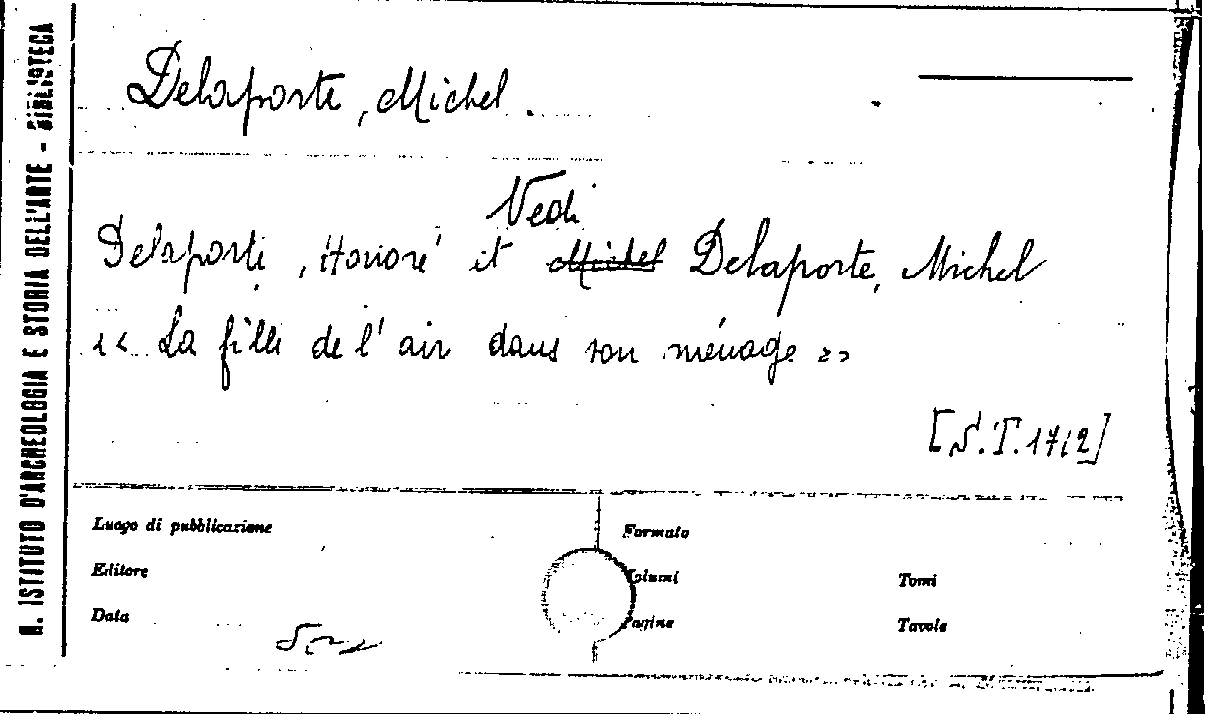 N. ISTITUTO D'ARCHEOLOGIA E STORIA DELL'ARTE - BIBLIOTECA
Delaporte, Michel.
Vedi
Delaporte, Honoré et Michel Delaporte, Michel
<< La fille de l'air dans son ménage >>
[S.T.17/2]
Luogo di pubblicazione
Formato
Editore
Volumi
Tomi
Data
Pagine
Tavole